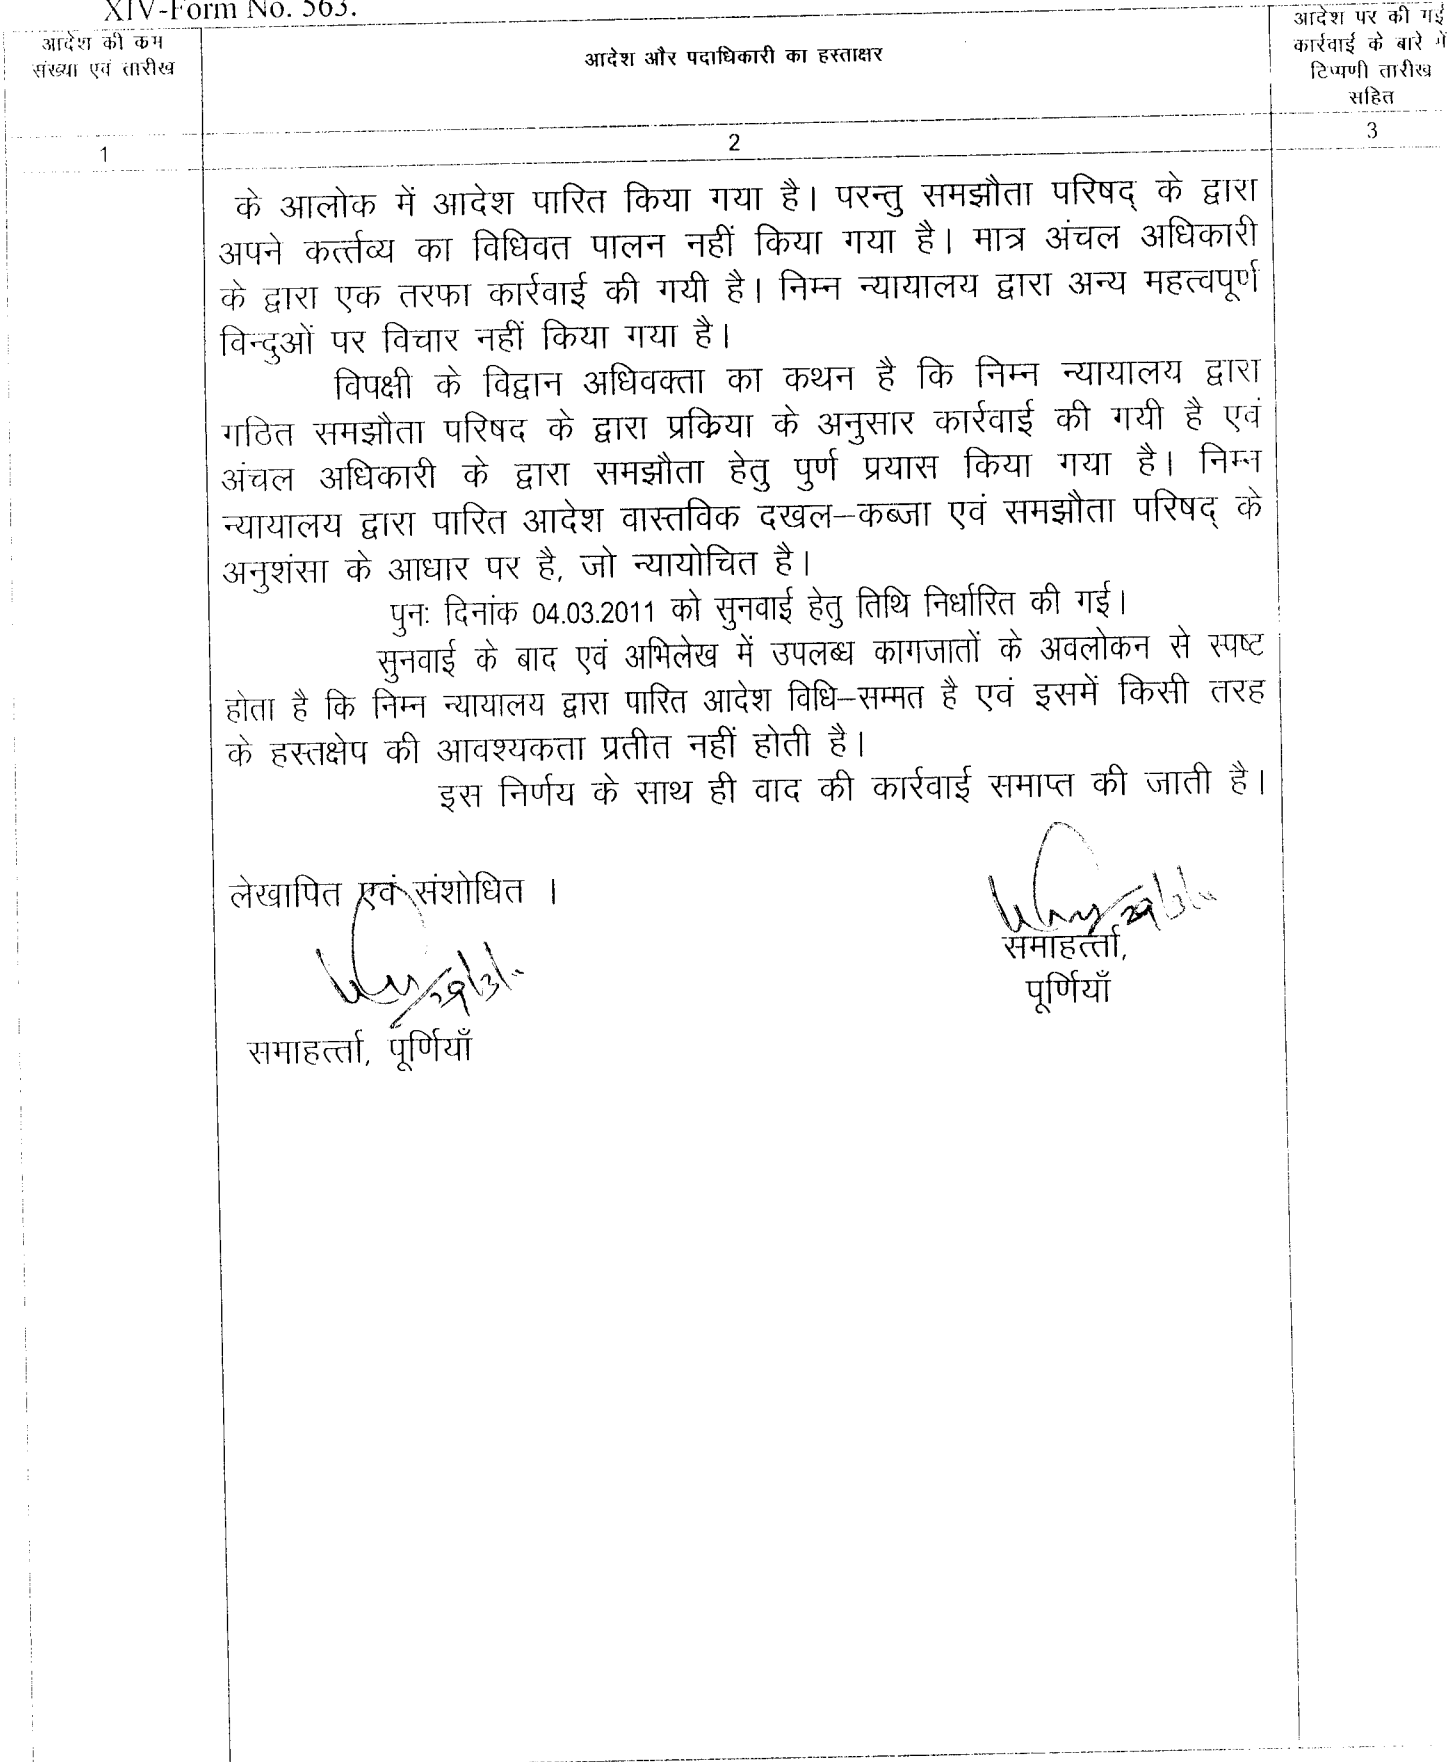 XIV-Form No. 563.
आदेश की कम
संख्या एवं तारीख
आदेश और पदाधिकारी का हस्ताक्षर
आदेश पर की गई
कार्रवाई के बारे में
टिप्पणी तारीख
सहित
1
2
3
के आलोक में आदेश पारित किया गया है। परन्तु समझौता परिषद् के द्वारा
अपने कर्त्तव्य का विधिवत पालन नहीं किया गया है। मात्र अंचल अधिकारी
के द्वारा एक तरफा कार्रवाई की गयी है। निम्न न्यायालय द्वारा अन्य महत्वपूर्ण
विन्दुओं पर विचार नहीं किया गया है।
विपक्षी के विद्वान अधिवक्ता का कथन है कि निम्न न्यायालय द्वारा
गठित समझौता परिषद के द्वारा प्रकिया के अनुसार कार्रवाई की गयी है एवं
अंचल अधिकारी के द्वारा समझौता हेतु पुर्ण प्रयास किया गया है। निम्न
न्यायालय द्वारा पारित आदेश वास्तविक दखल–कब्जा एवं समझौता परिषद् के
अनुशंसा के आधार पर है, जो न्यायोचित है।
पुनः दिनांक 04.03.2011 को सुनवाई हेतु तिथि निर्धारित की गई।
सुनवाई के बाद एवं अभिलेख में उपलब्ध कागजातों के अवलोकन से स्पष्ट
होता है कि निम्न न्यायालय द्वारा पारित आदेश विधि–सम्मत है एवं इसमें किसी तरह
के हस्तक्षेप की आवश्यकता प्रतीत नहीं होती है।
इस निर्णय के साथ ही वाद की कार्रवाई समाप्त की जाती है।
लेखापित एवं संशोधित ।
29/3/11
समाहर्त्ता,
पूर्णियाँ
29/3/11
समाहर्त्ता, पूर्णियाँ